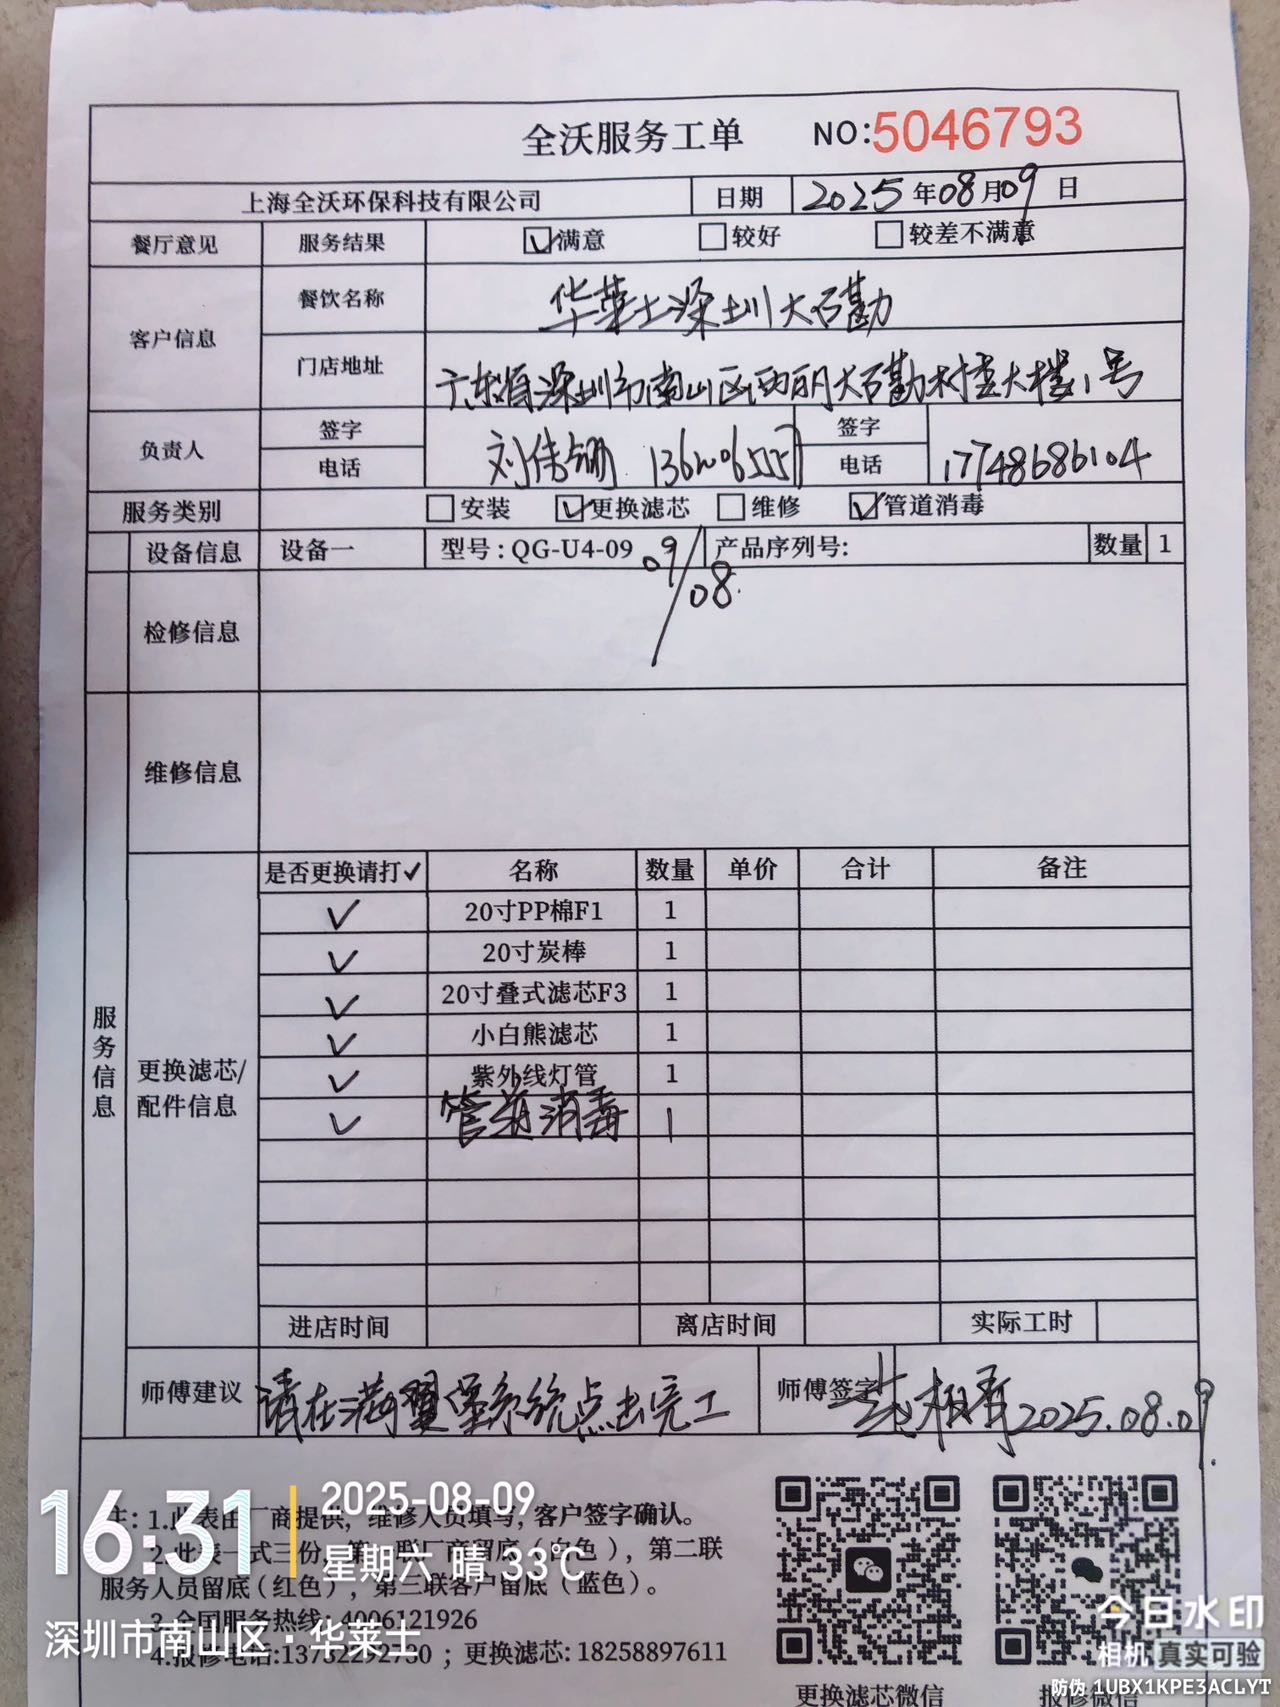 全沃服务工单 NO:5046793
上海全沃环保科技有限公司 日期 2025年08月09日
餐厅意见 服务结果 ☑满意 □较好 □较差不满意
客户信息 餐饮名称 华莱士深圳大石勘
门店地址 广东省深圳市南山区西丽大石勘村委大楼1号
负责人 签字 电话 刘伟 签字 电话 17748686104
服务类别 □安装 ☑更换滤芯 □维修 ☑管道消毒
设备信息 设备一 型号:QG-U4-09 产品序列号: 数量 1
09/08.
检修信息
维修信息
服务信息
更换滤芯/配件信息
是否更换请打✓ 名称 数量 单价 合计 备注
✓ 20寸PP棉F1 1
✓ 20寸炭棒 1
✓ 20寸叠式滤芯F3 1
✓ 小白熊滤芯 1
✓ 紫外线灯管 1
✓ 管道消毒 1
进店时间 离店时间 实际工时
师傅建议 请在满翼堡系统点击完工 师傅签字 2025.08.09.
注:1.此表由厂商提供,维修人员填写,客户签字确认。
2.此表一式三份,第一联厂商留底(白色),第二联
服务人员留底(红色),第三联客户留底(蓝色)。
3.全国服务热线:4006121926
4.报修电话:13752292780;更换滤芯:18258897611
更换滤芯微信 报修微信
16:31
2025-08-09
星期六 晴 33℃
深圳市南山区·华莱士
今日水印
相机 真实可验
防伪 1UBX1KPE3ACLYT